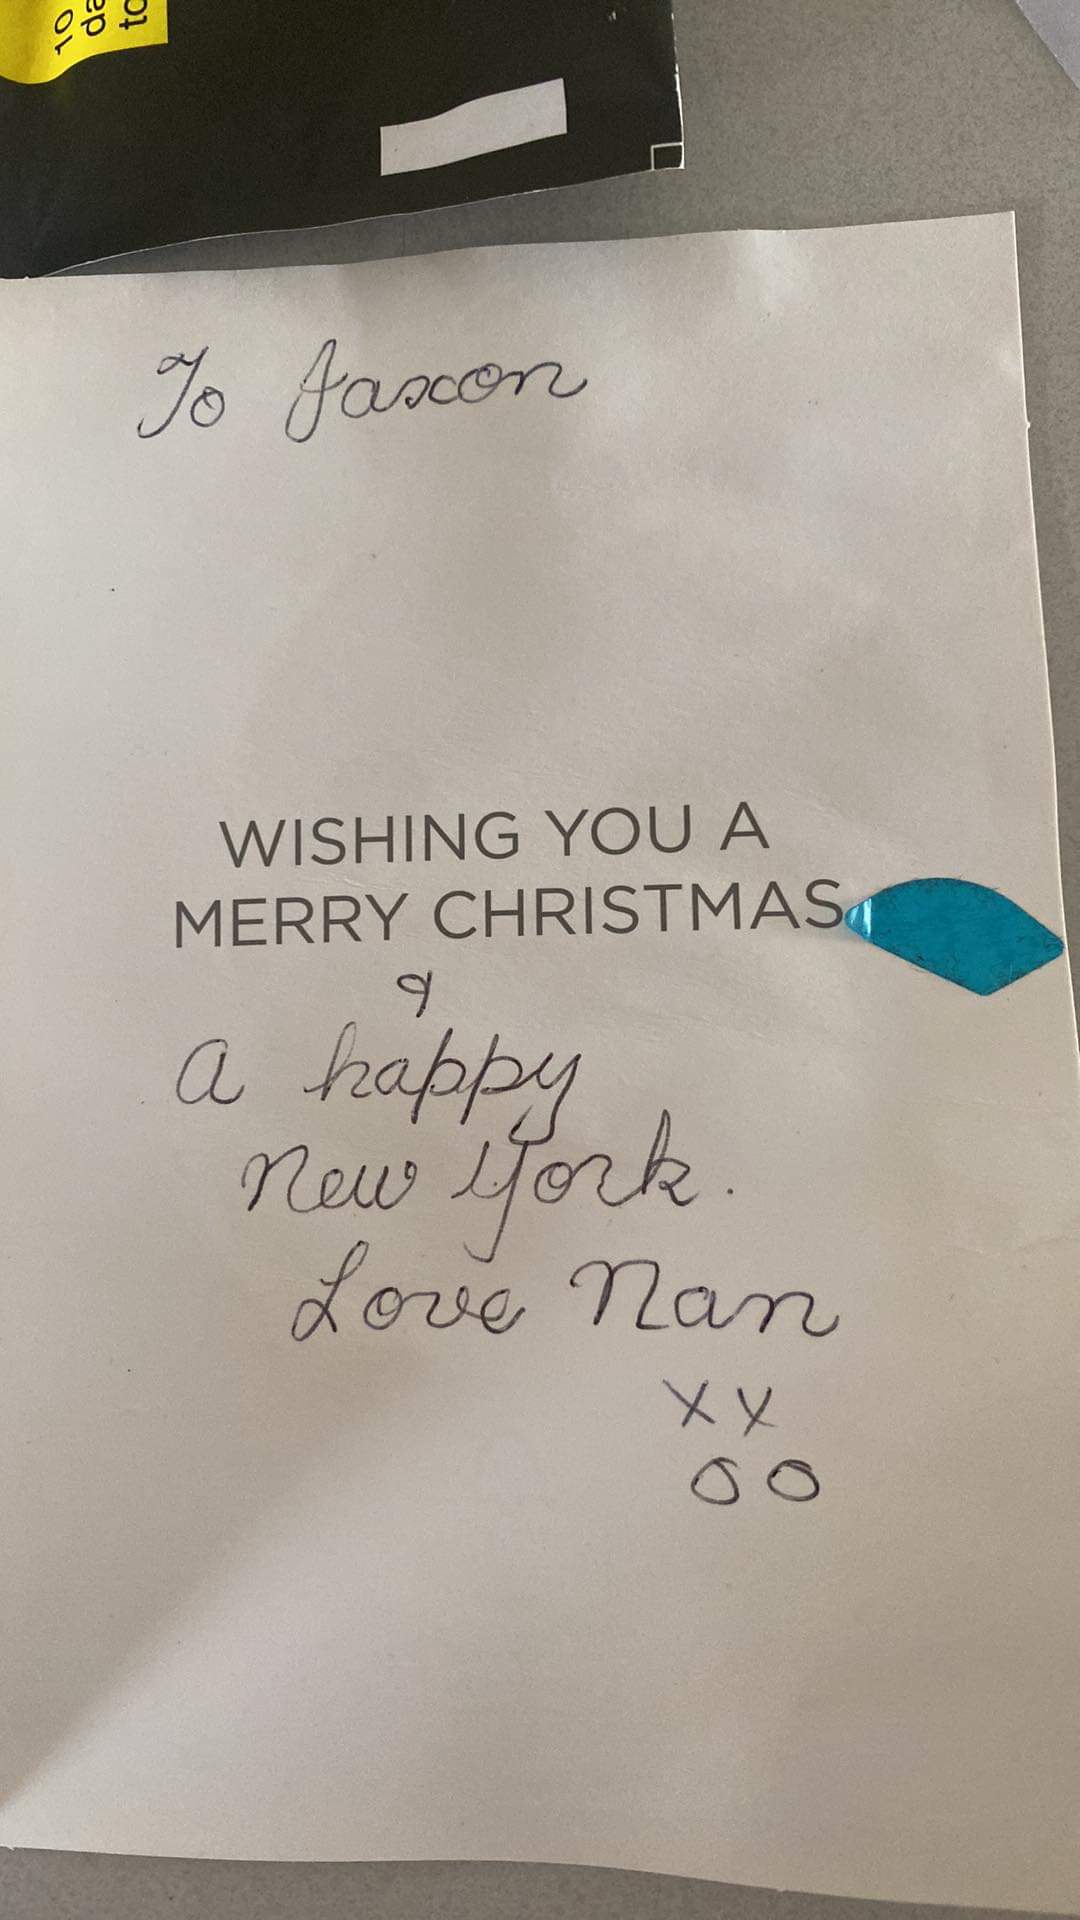 10
da
to
To Jaxon
WISHING YOU A
MERRY CHRISTMAS
&
a happy
New York.
Love Nan
XX
OO